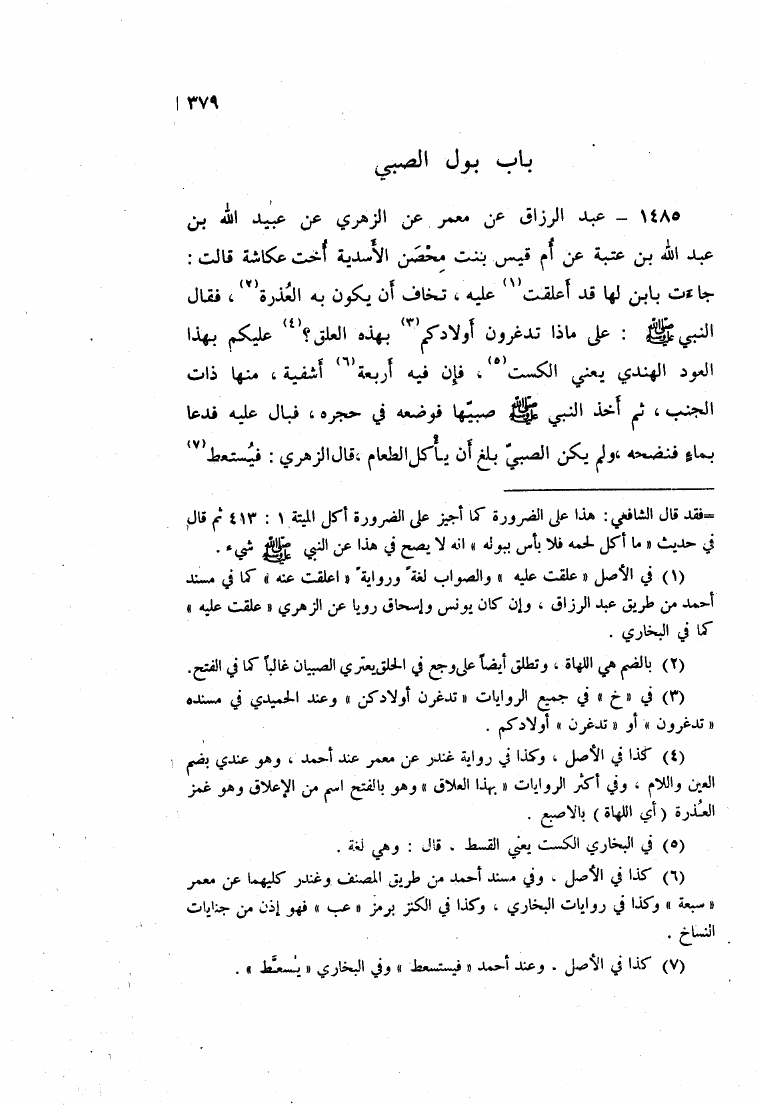 ٣٧٩ ا
باب بول الصبي
١٤٨٥ – عبد الرزاق عن معمر عن الزهري عن عبيد الله بن
عبد الله بن عتبة عن أم قيس بنت مِحْصَن الأسدية أخت عكاشة قالت :
جاءَت بابن لها قد أعلقت(١) عليه ، تخاف أن يكون به العُذرة(٢) ، فقال
النبي ﷺ : على ماذا تدغرون أولادكم(٣) بهذه العلق ؟(٤) عليكم بهذا
العود الهندي يعني الكست(٥) ، فإن فيه أربعة(٦) أشفية ، منها ذات
الجنب ، ثم أخذ النبي ﷺ صبيّها فوضعه في حجره ، فبال عليه فدعا
بماءٍ فنضحه ،ولم يكن الصبيّ بلغ أن يأكل الطعام ،قال الزهري : فيُستعط(٧)
=فقد قال الشافعي : هذا على الضرورة كما أجيز على الضرورة أكل الميتة ١ : ٤١٣ ثم قال
في حديث « ما أكل لحمه فلا بأس ببوله » انه لا يصح في هذا عن النبي ﷺ شيء .
(١) في الأصل « علقت عليه » والصواب لغةً وروايةً « اعلقت عنه » كما في مسند
أحمد من طريق عبد الرزاق ، وإن كان يونس وإسحاق رويا عن الزهري « علقت عليه »
كما في البخاري .
(٢) بالضم هي اللهاة ، وتطلق أيضاً على وجع في الحلق يعتري الصبيان غالباً كما في الفتح.
(٣) في « خ » في جميع الروايات « تدغرن أولادكن » وعند الحميدي في مسنده
« تدغرون » أو « تدغرن » أولادكم .
(٤) كذا في الأصل ، وكذا في رواية غندر عن معمر عند أحمد ، وهو عندي بضم
العين واللام ، وفي أكثر الروايات « بهذا العلاق » وهو بالفتح اسم من الإعلاق وهو غمز
العُذرة ( أي اللهاة ) بالاصبع .
(٥) في البخاري الكست يعني القسط . قال : وهي لغة .
(٦) كذا في الأصل . وفي مسند أحمد من طريق المصنف وغندر كليهما عن معمر
« سبعة » وكذا في روايات البخاري ، وكذا في الكنز برمز « عب » فهو إذن من جنايات
النساخ .
(٧) كذا في الأصل . وعند أحمد « فيستسعط » وفي البخاري « يُسعَّط » .